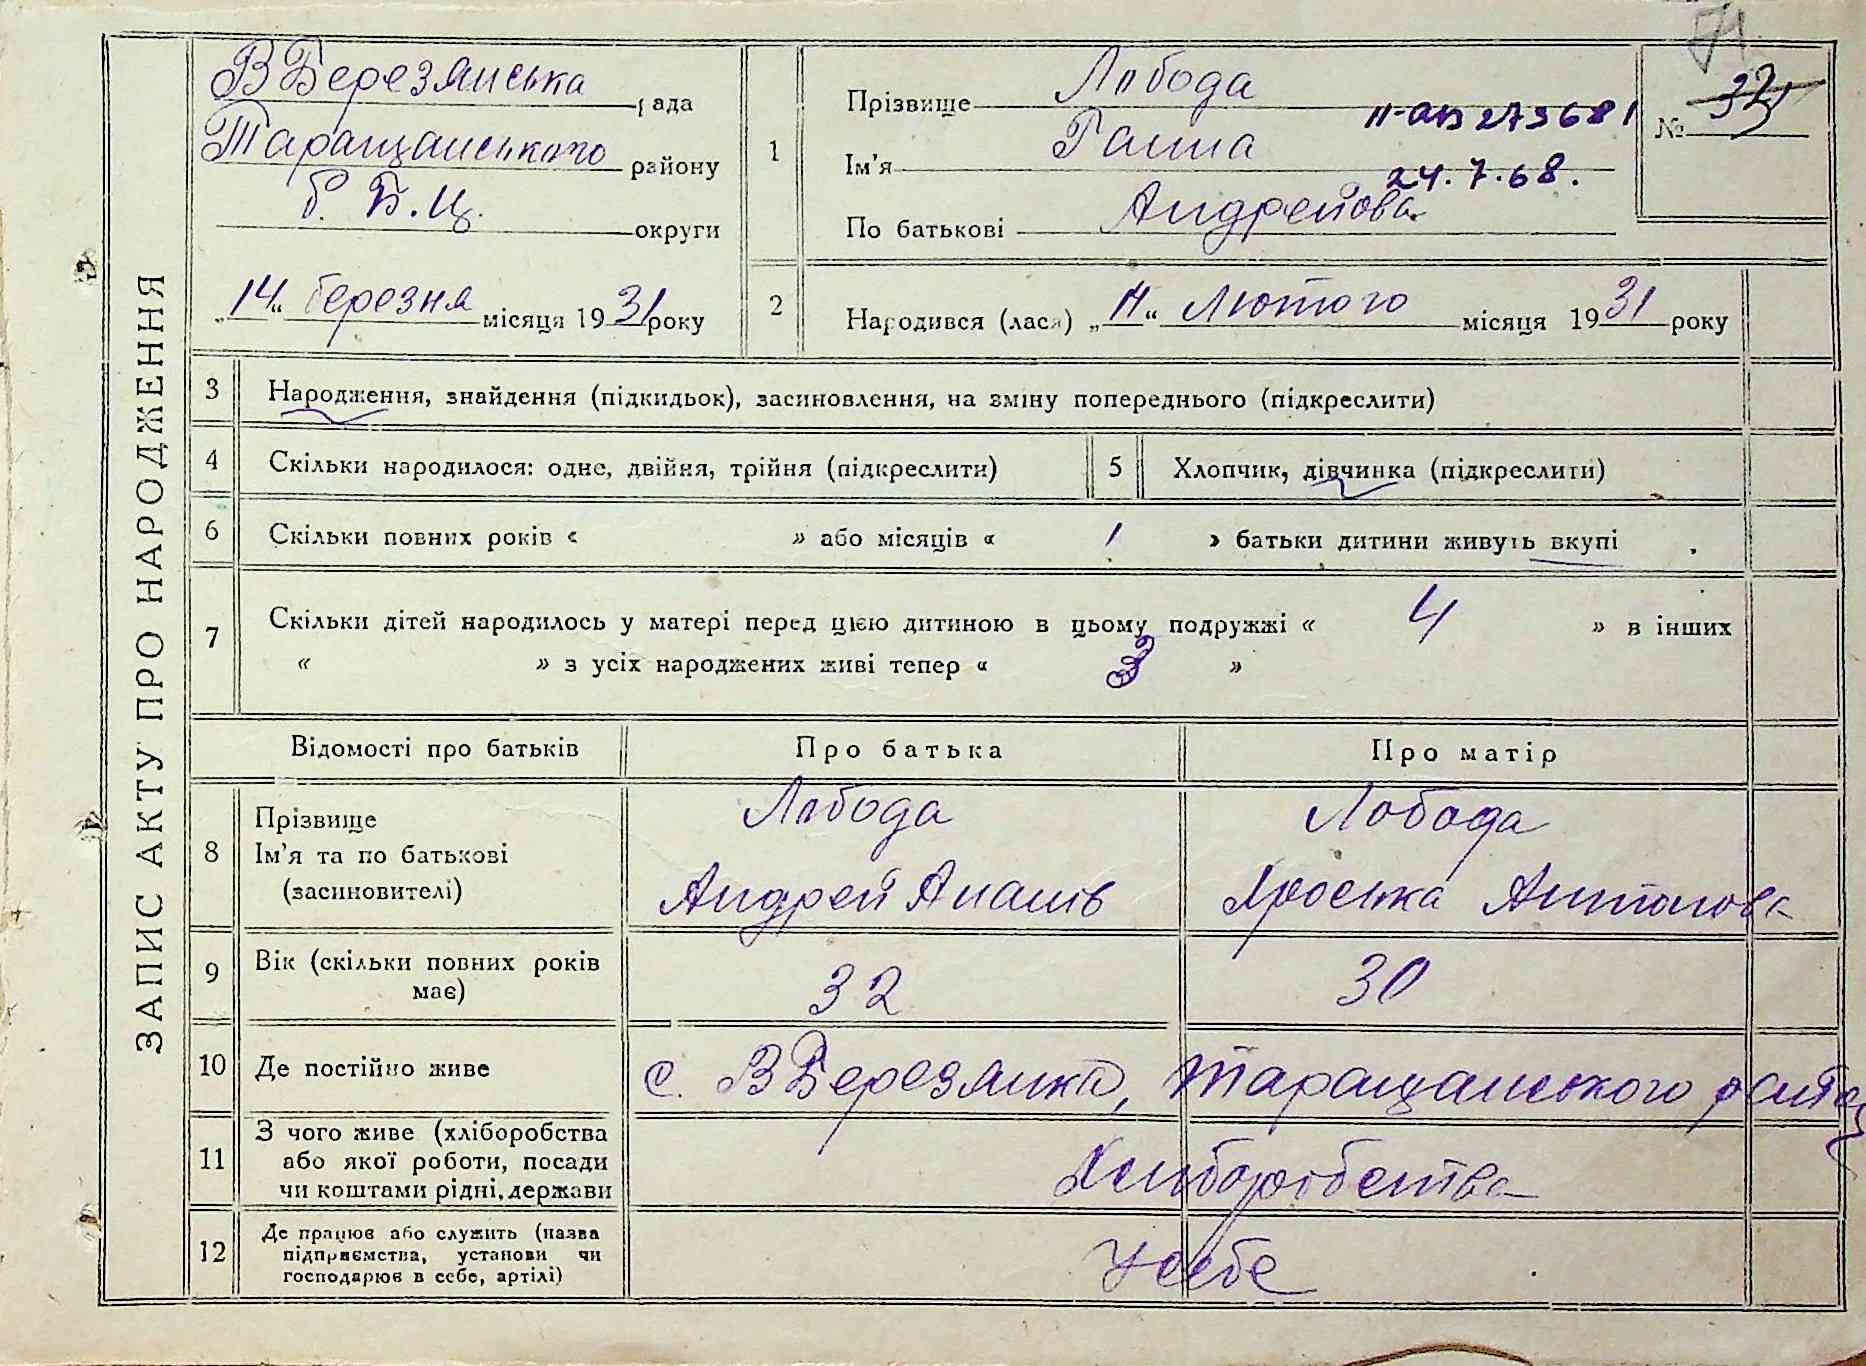 ЗАПИС АКТУ ПРО НАРОДЖЕННЯ
ВБерезянська рада
Таращанського району
б. Б.Ц. округи
„14“ березня місяця 1931 року
71
№ 33
1 Прізвище Лобода
II-АБ 273681
Ім'я Ганна
24.7.68.
По батькові Андрейова
2 Народився (лася) „11“ Лютого місяця 1931 року
3 Народження, знайдення (підкидьок), засиновлення, на зміну попереднього (підкреслити)
4 Скільки народилося: одне, двійня, трійня (підкреслити) 5 Хлопчик, дівчинка (підкреслити)
6 Скільки повних років « » або місяців « 1 » батьки дитини живуть вкупі
7 Скільки дітей народилось у матері перед цією дитиною в цьому подружжі « 4 » в інших
« » з усіх народжених живі тепер « 3 »
Відомості про батьків Про батька Про матір
8 Прізвище Лобода Лобода
Ім'я та по батькові
(засиновителі) Андрей Ананів Проська Антонова
9 Вік (скільки повних років має) 32 30
10 Де постійно живе с. ВБерезянка, Таращанського району
11 З чого живе (хліборобства
або якої роботи, посади
чи коштами рідні, держави Хліборобства
12 Де працює або служить (назва
підприємства, установи чи
господарює в себе, артілі) у себе